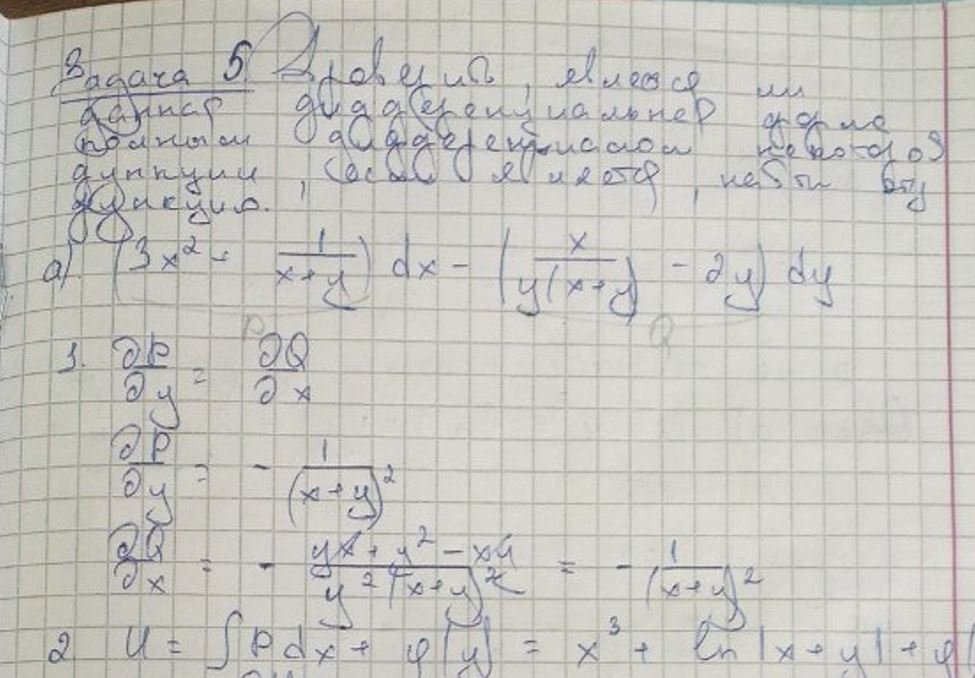 Задача 5 Проверить, является ли
данная дифференциальная форма
полным дифференциалом некоторой
функции, если является, найти эту
функцию.
а) (3x² + 1/(x+y)) dx - (x/(y(x+y)) - 2y) dy
P Q
1. ∂P/∂y = ∂Q/∂x
∂P/∂y = - 1/(x+y)²
∂Q/∂x = - (yx + y² - xy)/(y²(x+y)²) = - 1/(x+y)²
2 U = ∫P dx + φ(y) = x³ + ln|x+y| + φ(